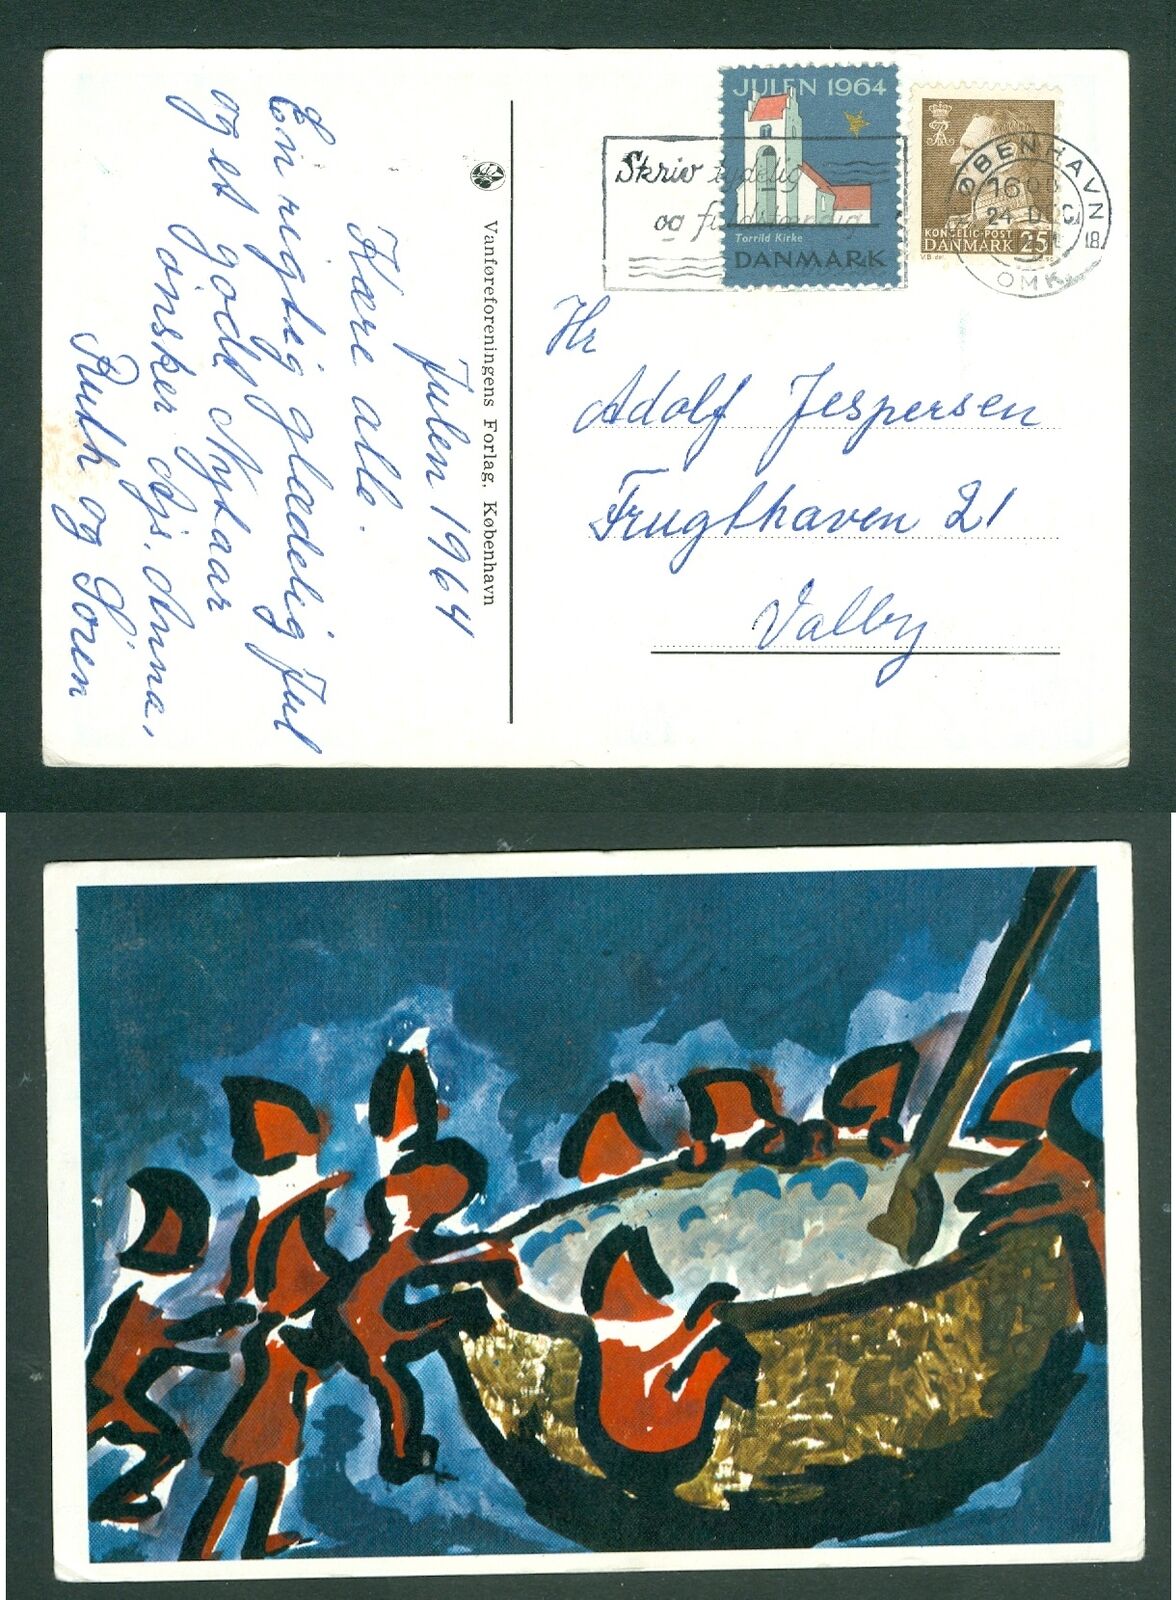 Julen 1964
Kære alle.
En rigtig glædelig Jul
og et godt Nytaar
ønsker Ajs. Anna,
Ruth og Sören
Vanføreforeningens Forlag, København
JULEN 1964
Torrild Kirke
DANMARK
Skriv tydelig
og fuldstændig
KONGELIG·POST
DANMARK 25
KØBENHAVN
1600
24 DEC
18
OMK
Hr
Adolf Jespersen
Frugthaven 21
Valby